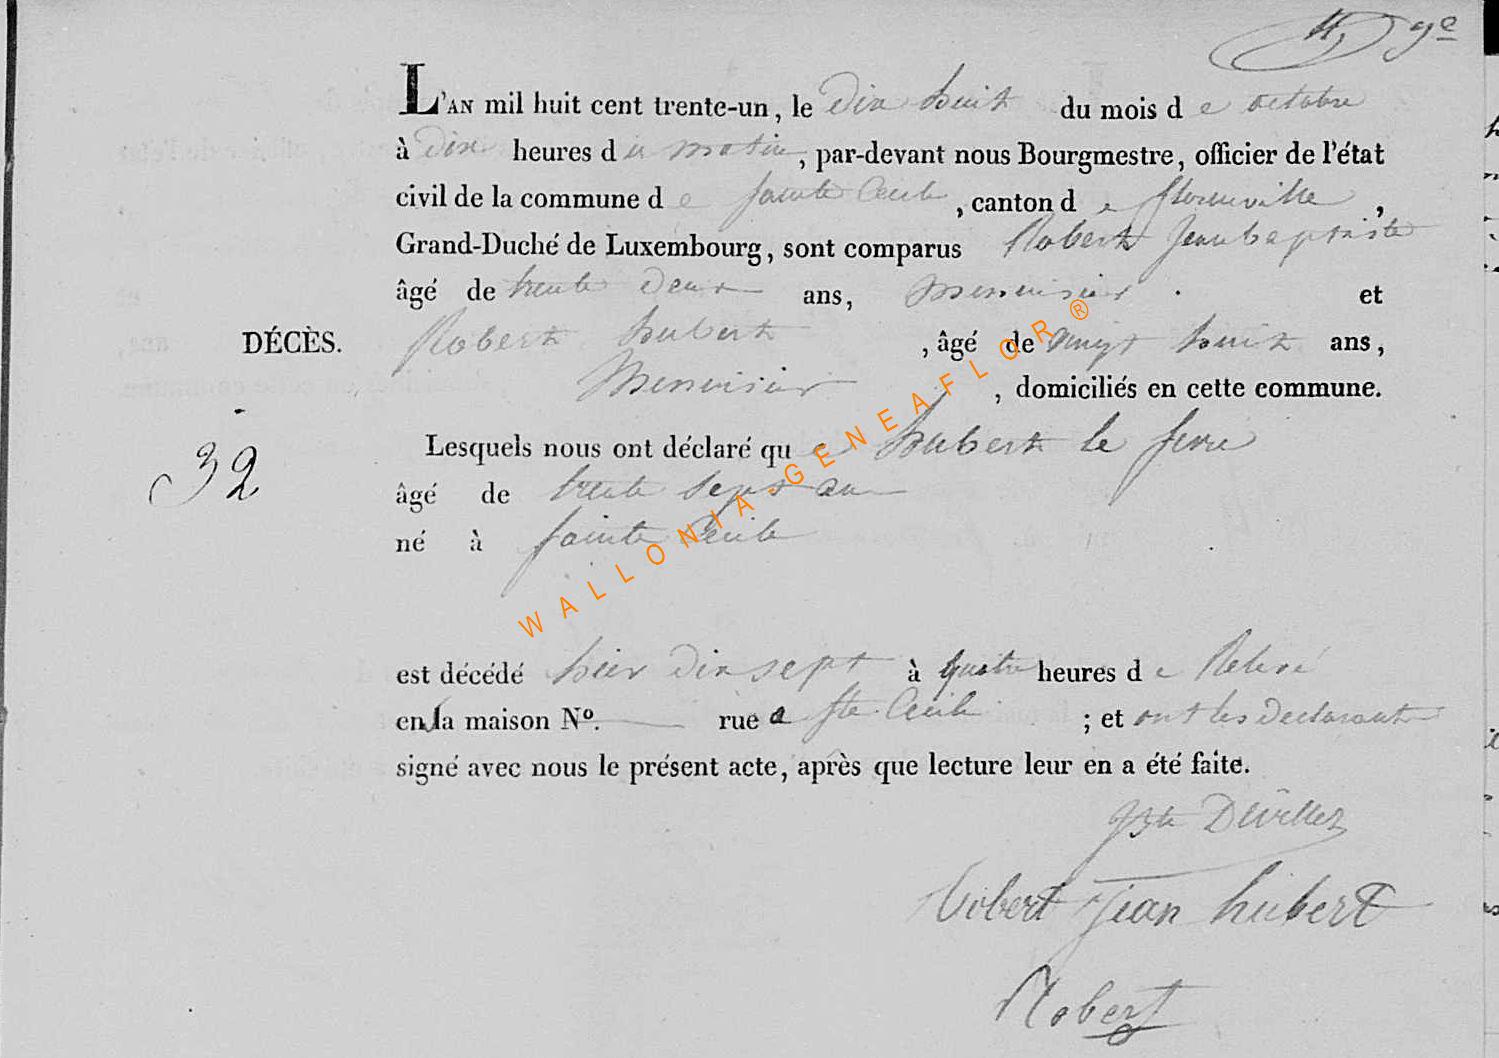 9e
L'AN mil huit cent trente-un, le Dix huit du mois d e octobre
à Dix heures d u matin, par-devant nous Bourgmestre, officier de l'état
civil de la commune d e sainte Cecile, canton d e florenville,
Grand-Duché de Luxembourg, sont comparus Robert Jean baptiste
âgé de trente Deux ans, Menuisier et
DÉCÈS. Robert hubert, âgé de vingt huit ans,
Menuisier, domiciliés en cette commune.
32
Lesquels nous ont déclaré qu e hubert le
âgé de trente sept an
né à sainte Cecile
est décédé hier Dix sept à quatre heures d e Relevé
en la maison No. rue a Ste. Cecile ; et ont les Declarant
signé avec nous le présent acte, après que lecture leur en a été faite.
JBte Devillez
Robert Jean hubert
Robert
WALLONIA-GENEAFLOR®